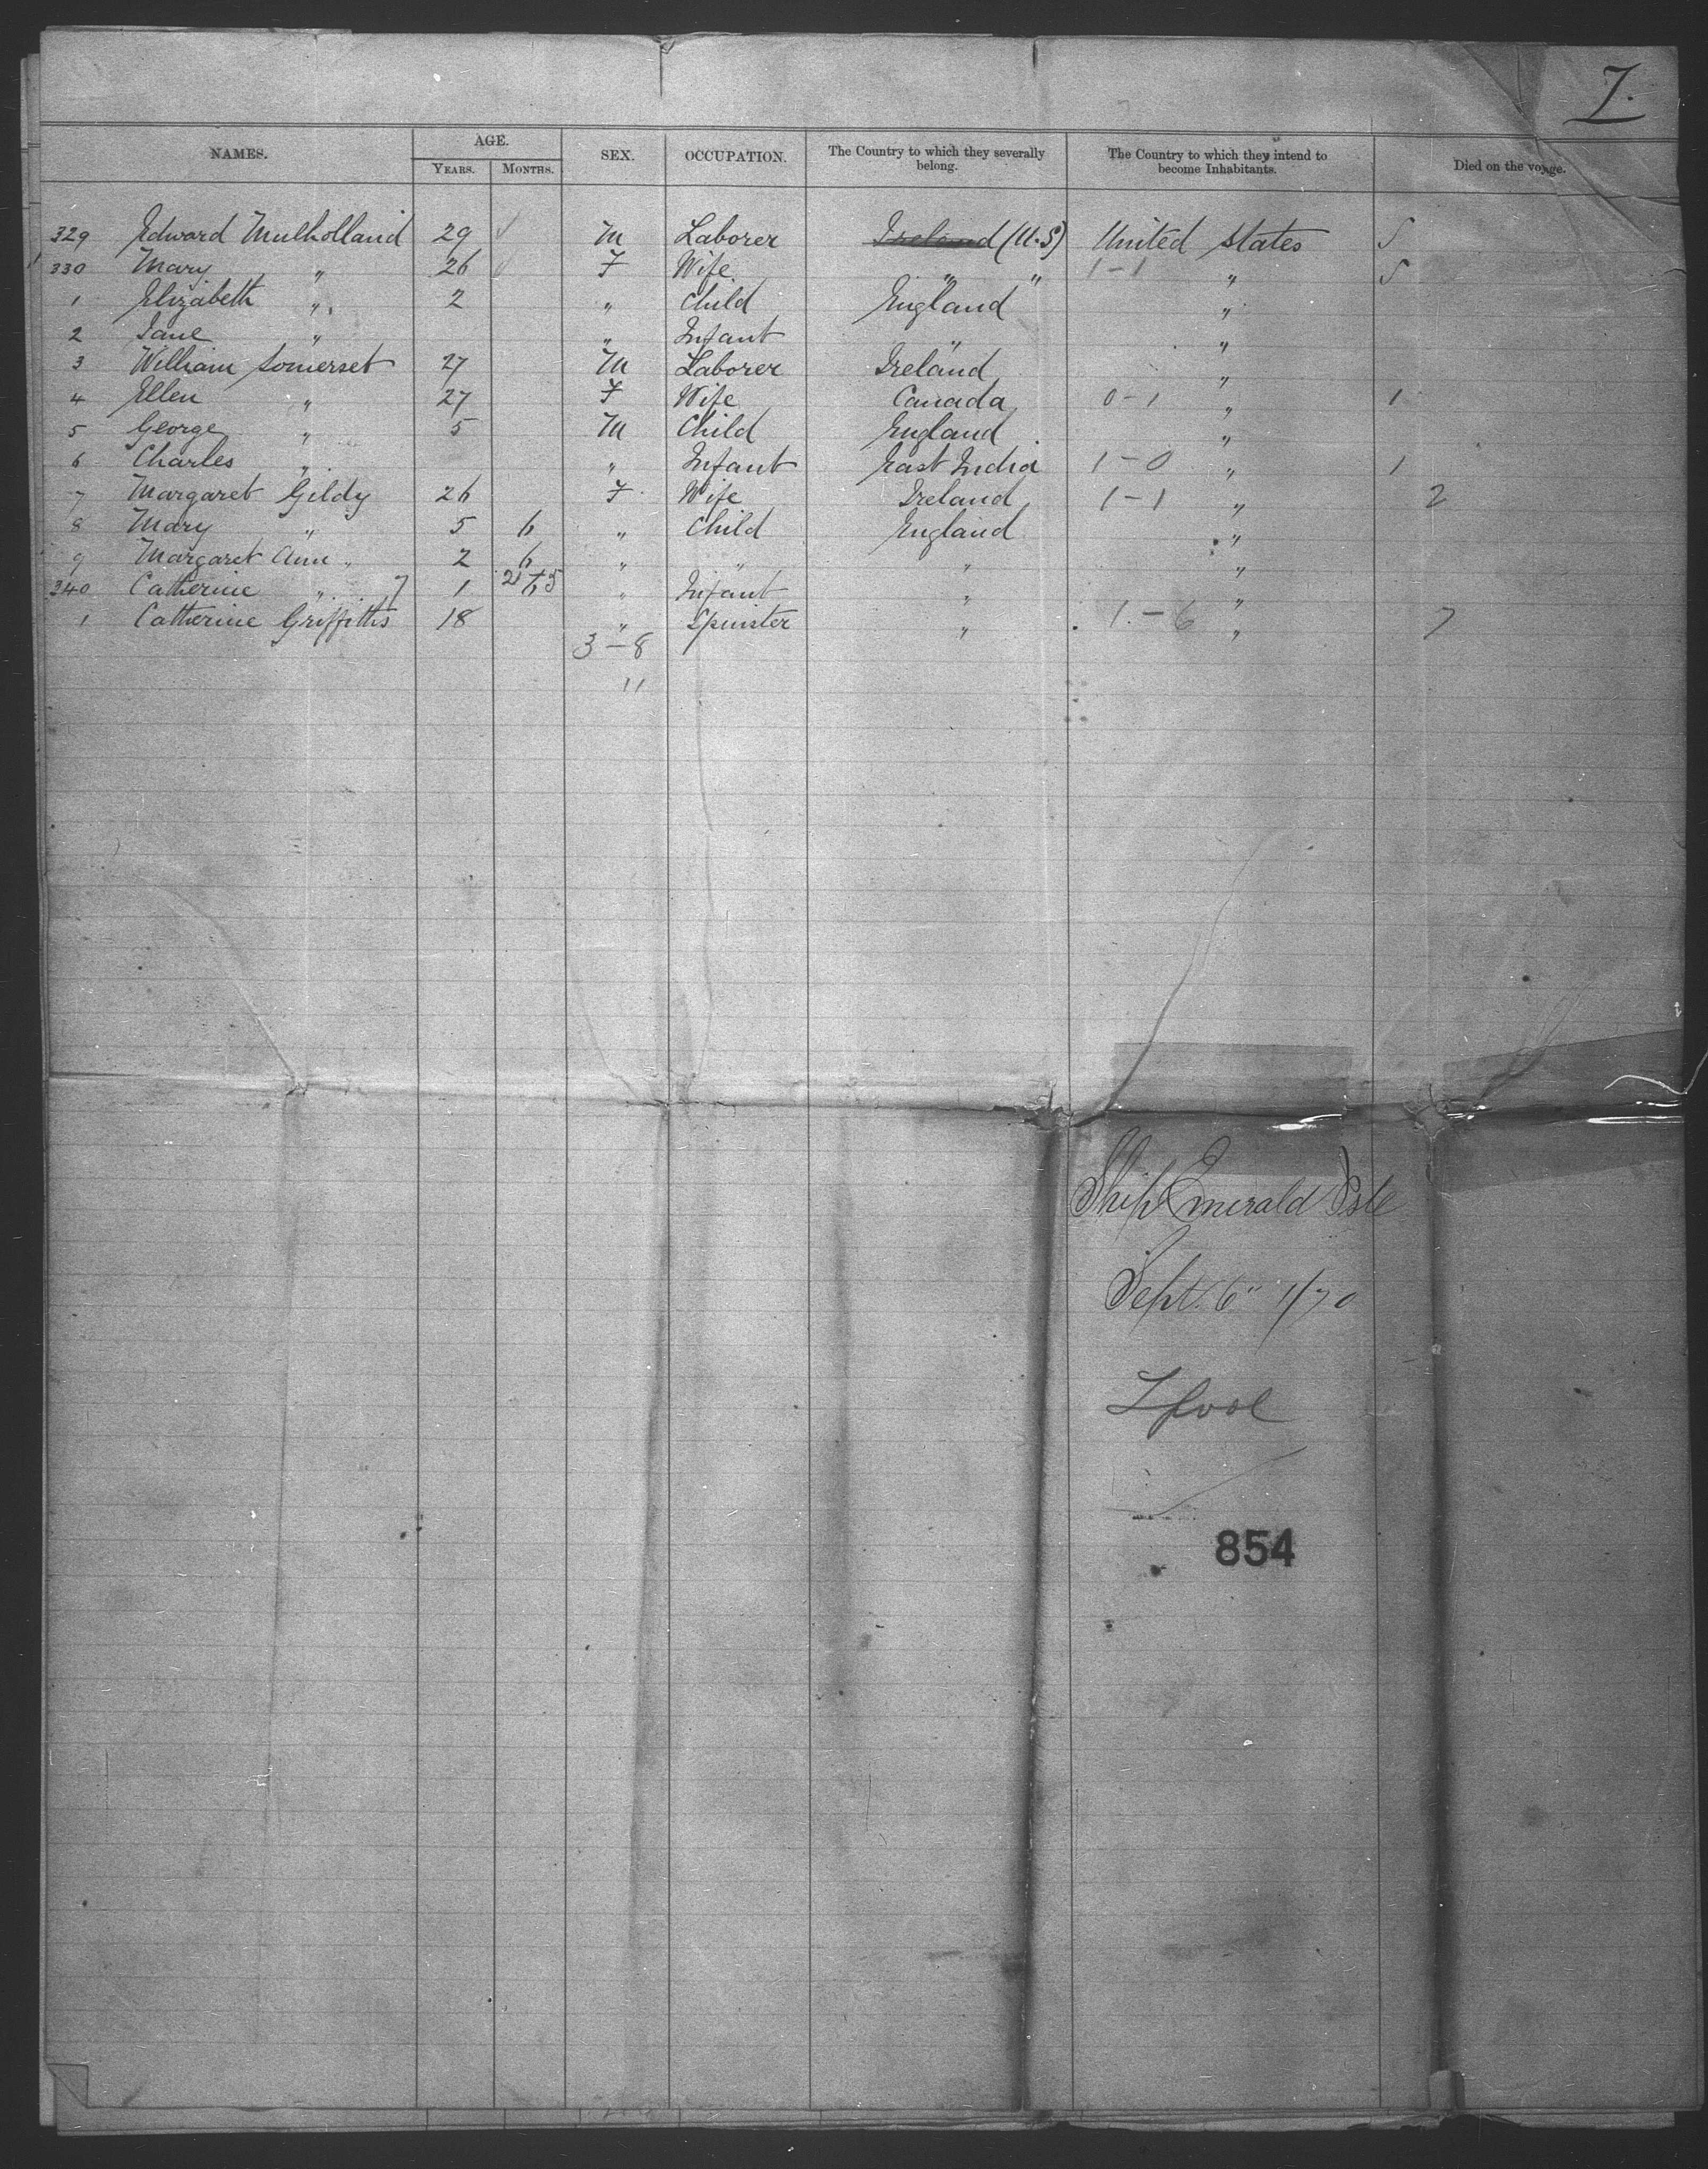 7.
NAMES. AGE. SEX. OCCUPATION. The Country to which they severally belong. The Country to which they intend to become Inhabitants. Died on the voyage.
YEARS. MONTHS.
329 Edward Mulholland 29 M Laborer Ireland (U.S) United States
330 Mary " 26 F Wife " " 1-1 "
1 Elizabeth " 2 " Child England "
2 Jane " " Infant " "
3 William Somerset 27 M Laborer Ireland "
4 Ellen " 27 F Wife Canada 0-1 " 1
5 George " 5 M Child England "
6 Charles " " Infant East India 1-0 " 1
7 Margaret Gildy 26 F Wife Ireland 1-1 " 2
8 Mary " 5 6 " Child England "
9 Margaret Ann " 2 6 " " " "
340 Catherine " 7 1 " Infant " "
1 Catherine Griffiths 18 " Spinster " 1-6 " 7
3-8
11
Ship Emerald Isle
Sept. 6" 1/70
Lpool
854